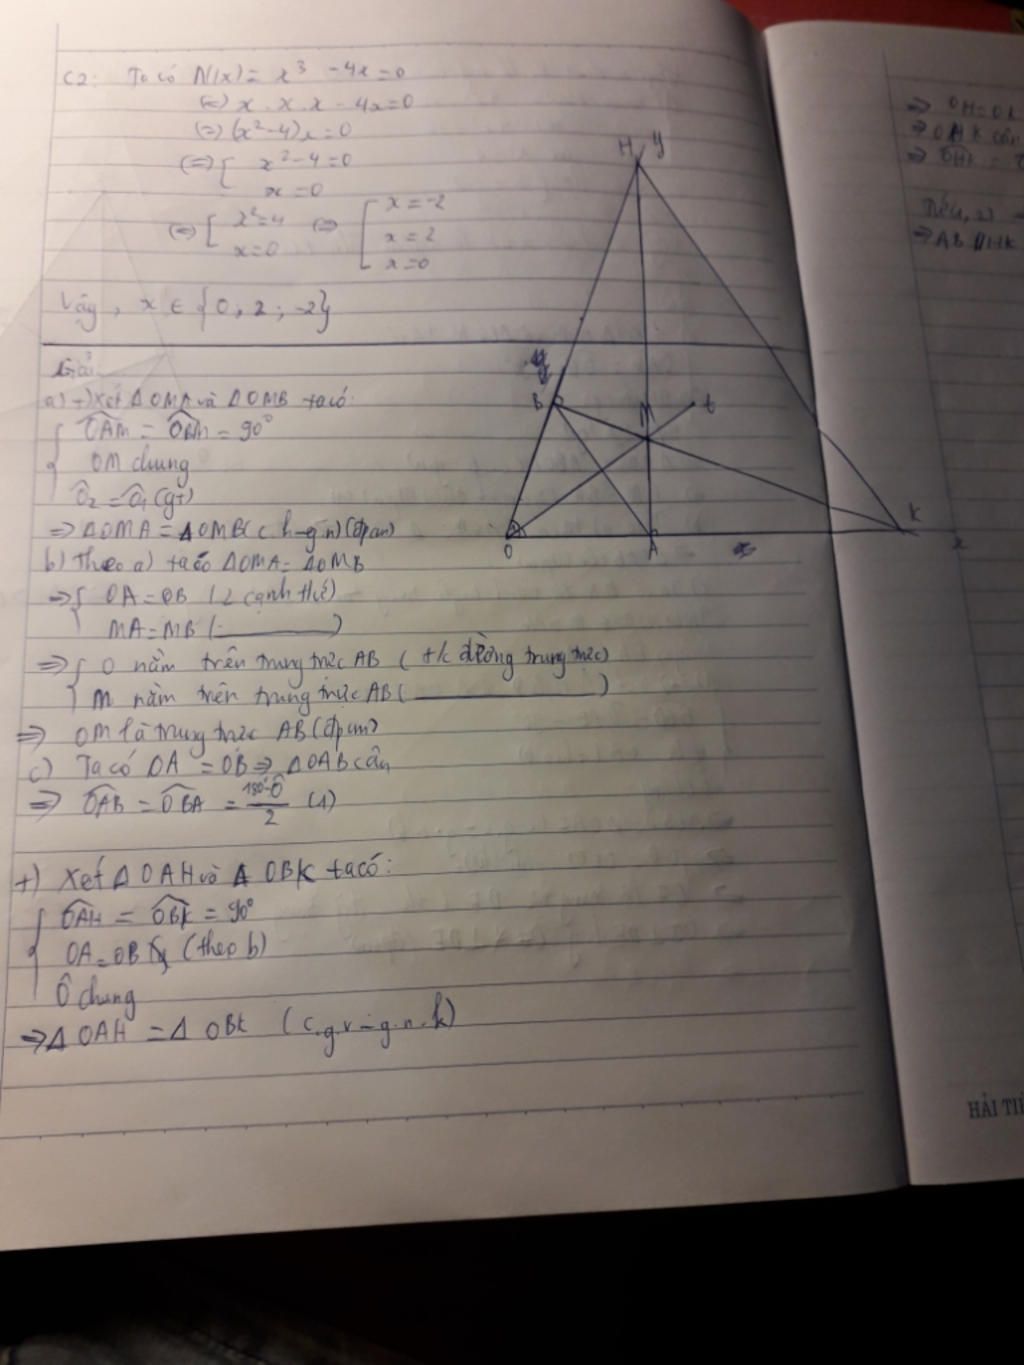 C2: Ta có N(x) = x³ - 4x = 0
(=) x . x . x - 4x = 0
(=) (x² - 4)x = 0
(=) [ x² - 4 = 0
x = 0
(=) [ x² = 4 (=) [ x = -2
x = 0 x = 2
x = 0
Vậy, x ∈ {0; 2; -2}
Giải
a) +) Xét ΔOMA và ΔOMB ta có:
{ OAM = OBM = 90°
OM chung
Ô2 = Ô1 (gt)
=> ΔOMA = ΔOMB (c.h-g.n) (đpcm)
b) Theo a) ta có ΔOMA = ΔOMB
=> { OA = OB (2 cạnh t/ư)
MA = MB ( )
=> { O nằm trên trung trực AB ( t/c đường trung trực)
M nằm trên trung trực AB ( )
=> OM là trung trực AB (đpcm)
c) Ta có OA = OB => ΔOAB cân
=> OAB = OBA = (180° - Ô)/2 (1)
+) Xét ΔOAH và ΔOBK ta có:
{ OAH = OBK = 90°
OA = OB (theo b)
Ô chung
=> ΔOAH = ΔOBK (c.g.v - g.n.k)
H y
B
M t
O A x K x
=> OH = OK
=> OHK cân
=> OHK =
Từ (1, 2)
=> AB // HK
HẢI TI